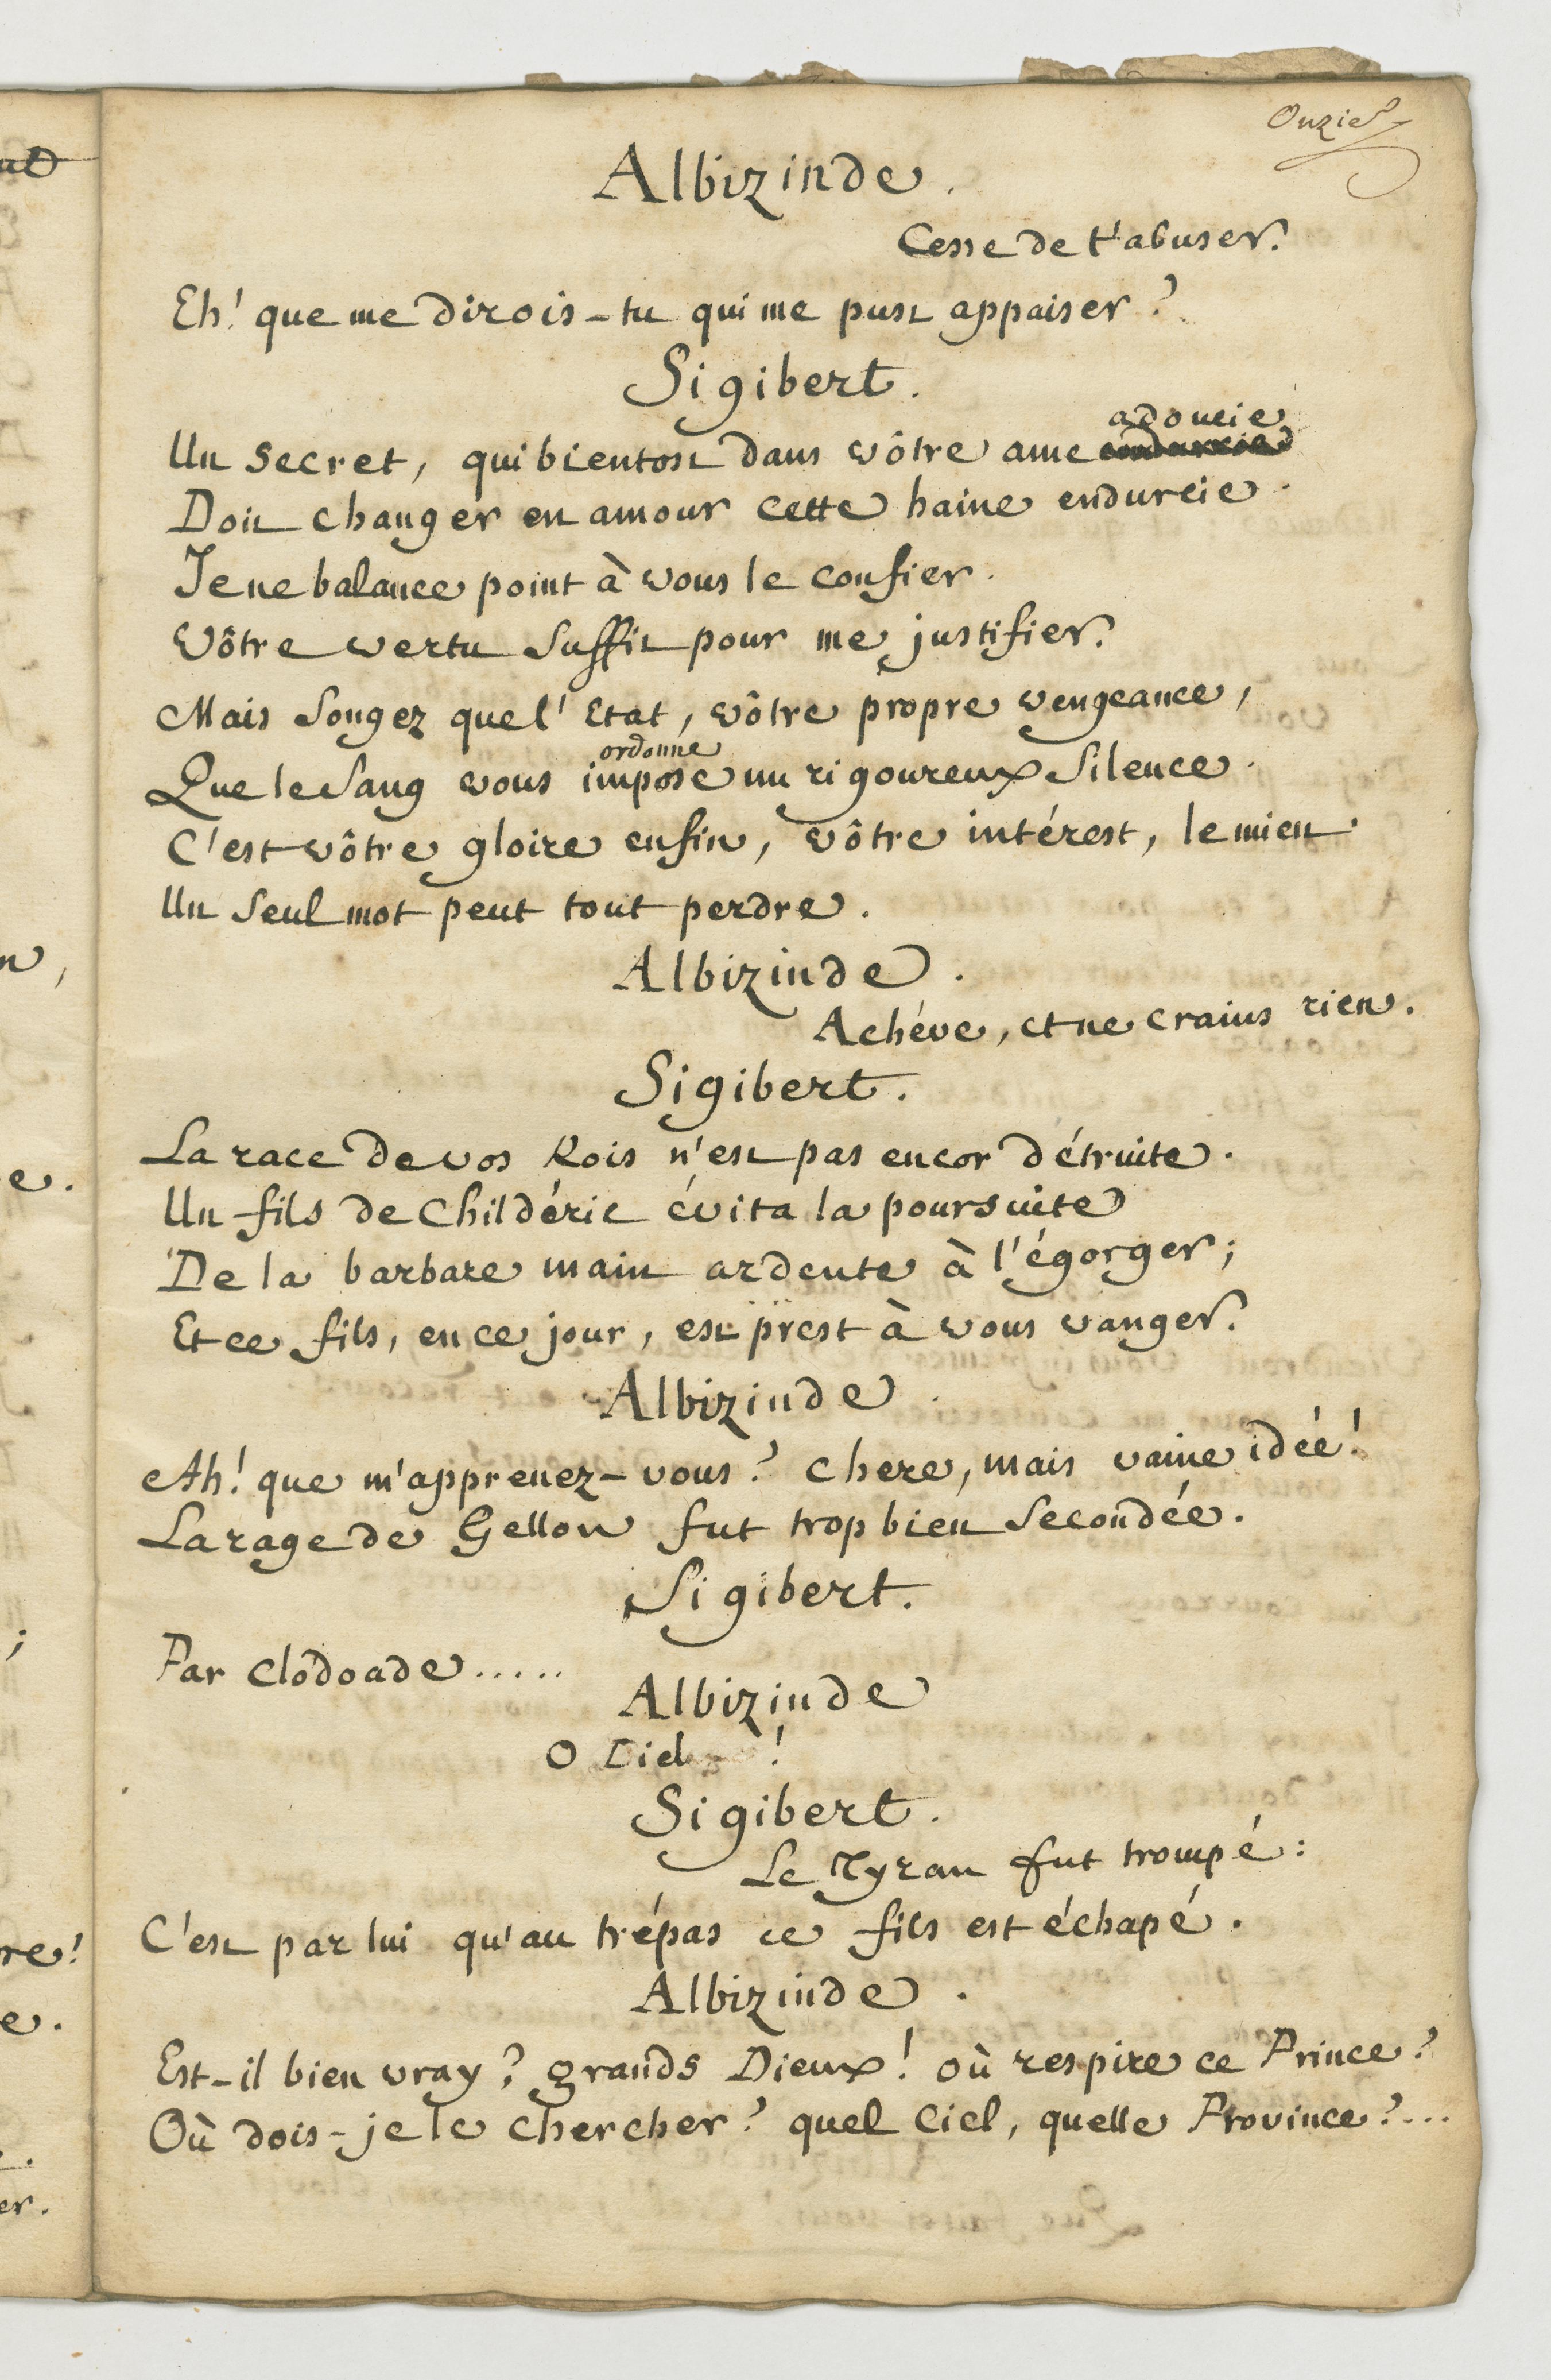 Onzie
Albizinde.
Cesse de t'abuser.
Eh! que me dirois-tu qui me pust appaiser?
Sigibert.
adoucie
Un secret, qui bientost dans vôtre ame
Doit changer en amour cette haine endurcie.
Je ne balance point à vous le confier.
Vôtre vertu suffit pour me justifier.
Mais songez que l'Etat, vôtre propre vengeance,
ordonne
Que le sang vous impose un rigoureux silence.
C'est vôtre gloire enfin, vôtre intérest, le mien.
Un seul mot peut tout perdre.
Albizinde.
Achéve, et ne crains rien.
Sigibert.
La race de vos Rois n'est pas encor détruite.
Un fils de Childéric évita la poursuite
De la barbare main ardente à l'égorger;
Et ce fils, en ce jour, est prest à vous vanger.
Albizinde.
Ah! que m'apprenez-vous? chere, mais vaine idée!
La rage de Gellon fut trop bien secondée.
Sigibert.
Par Clodoade.....
Albizinde
O Ciel !
Sigibert.
Le Tyran fut trompé:
C'est par lui qu'au trépas ce fils est échapé.
Albizinde.
Est-il bien vray? grands Dieux! où respire ce Prince?
Où dois-je le chercher? quel Ciel, quelle Province?...